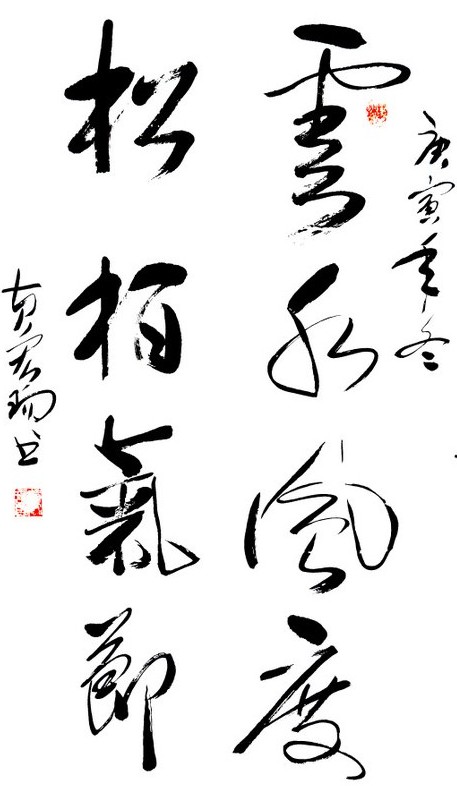 庚寅年冬
雲水風度
松柏氣節
黄宏书